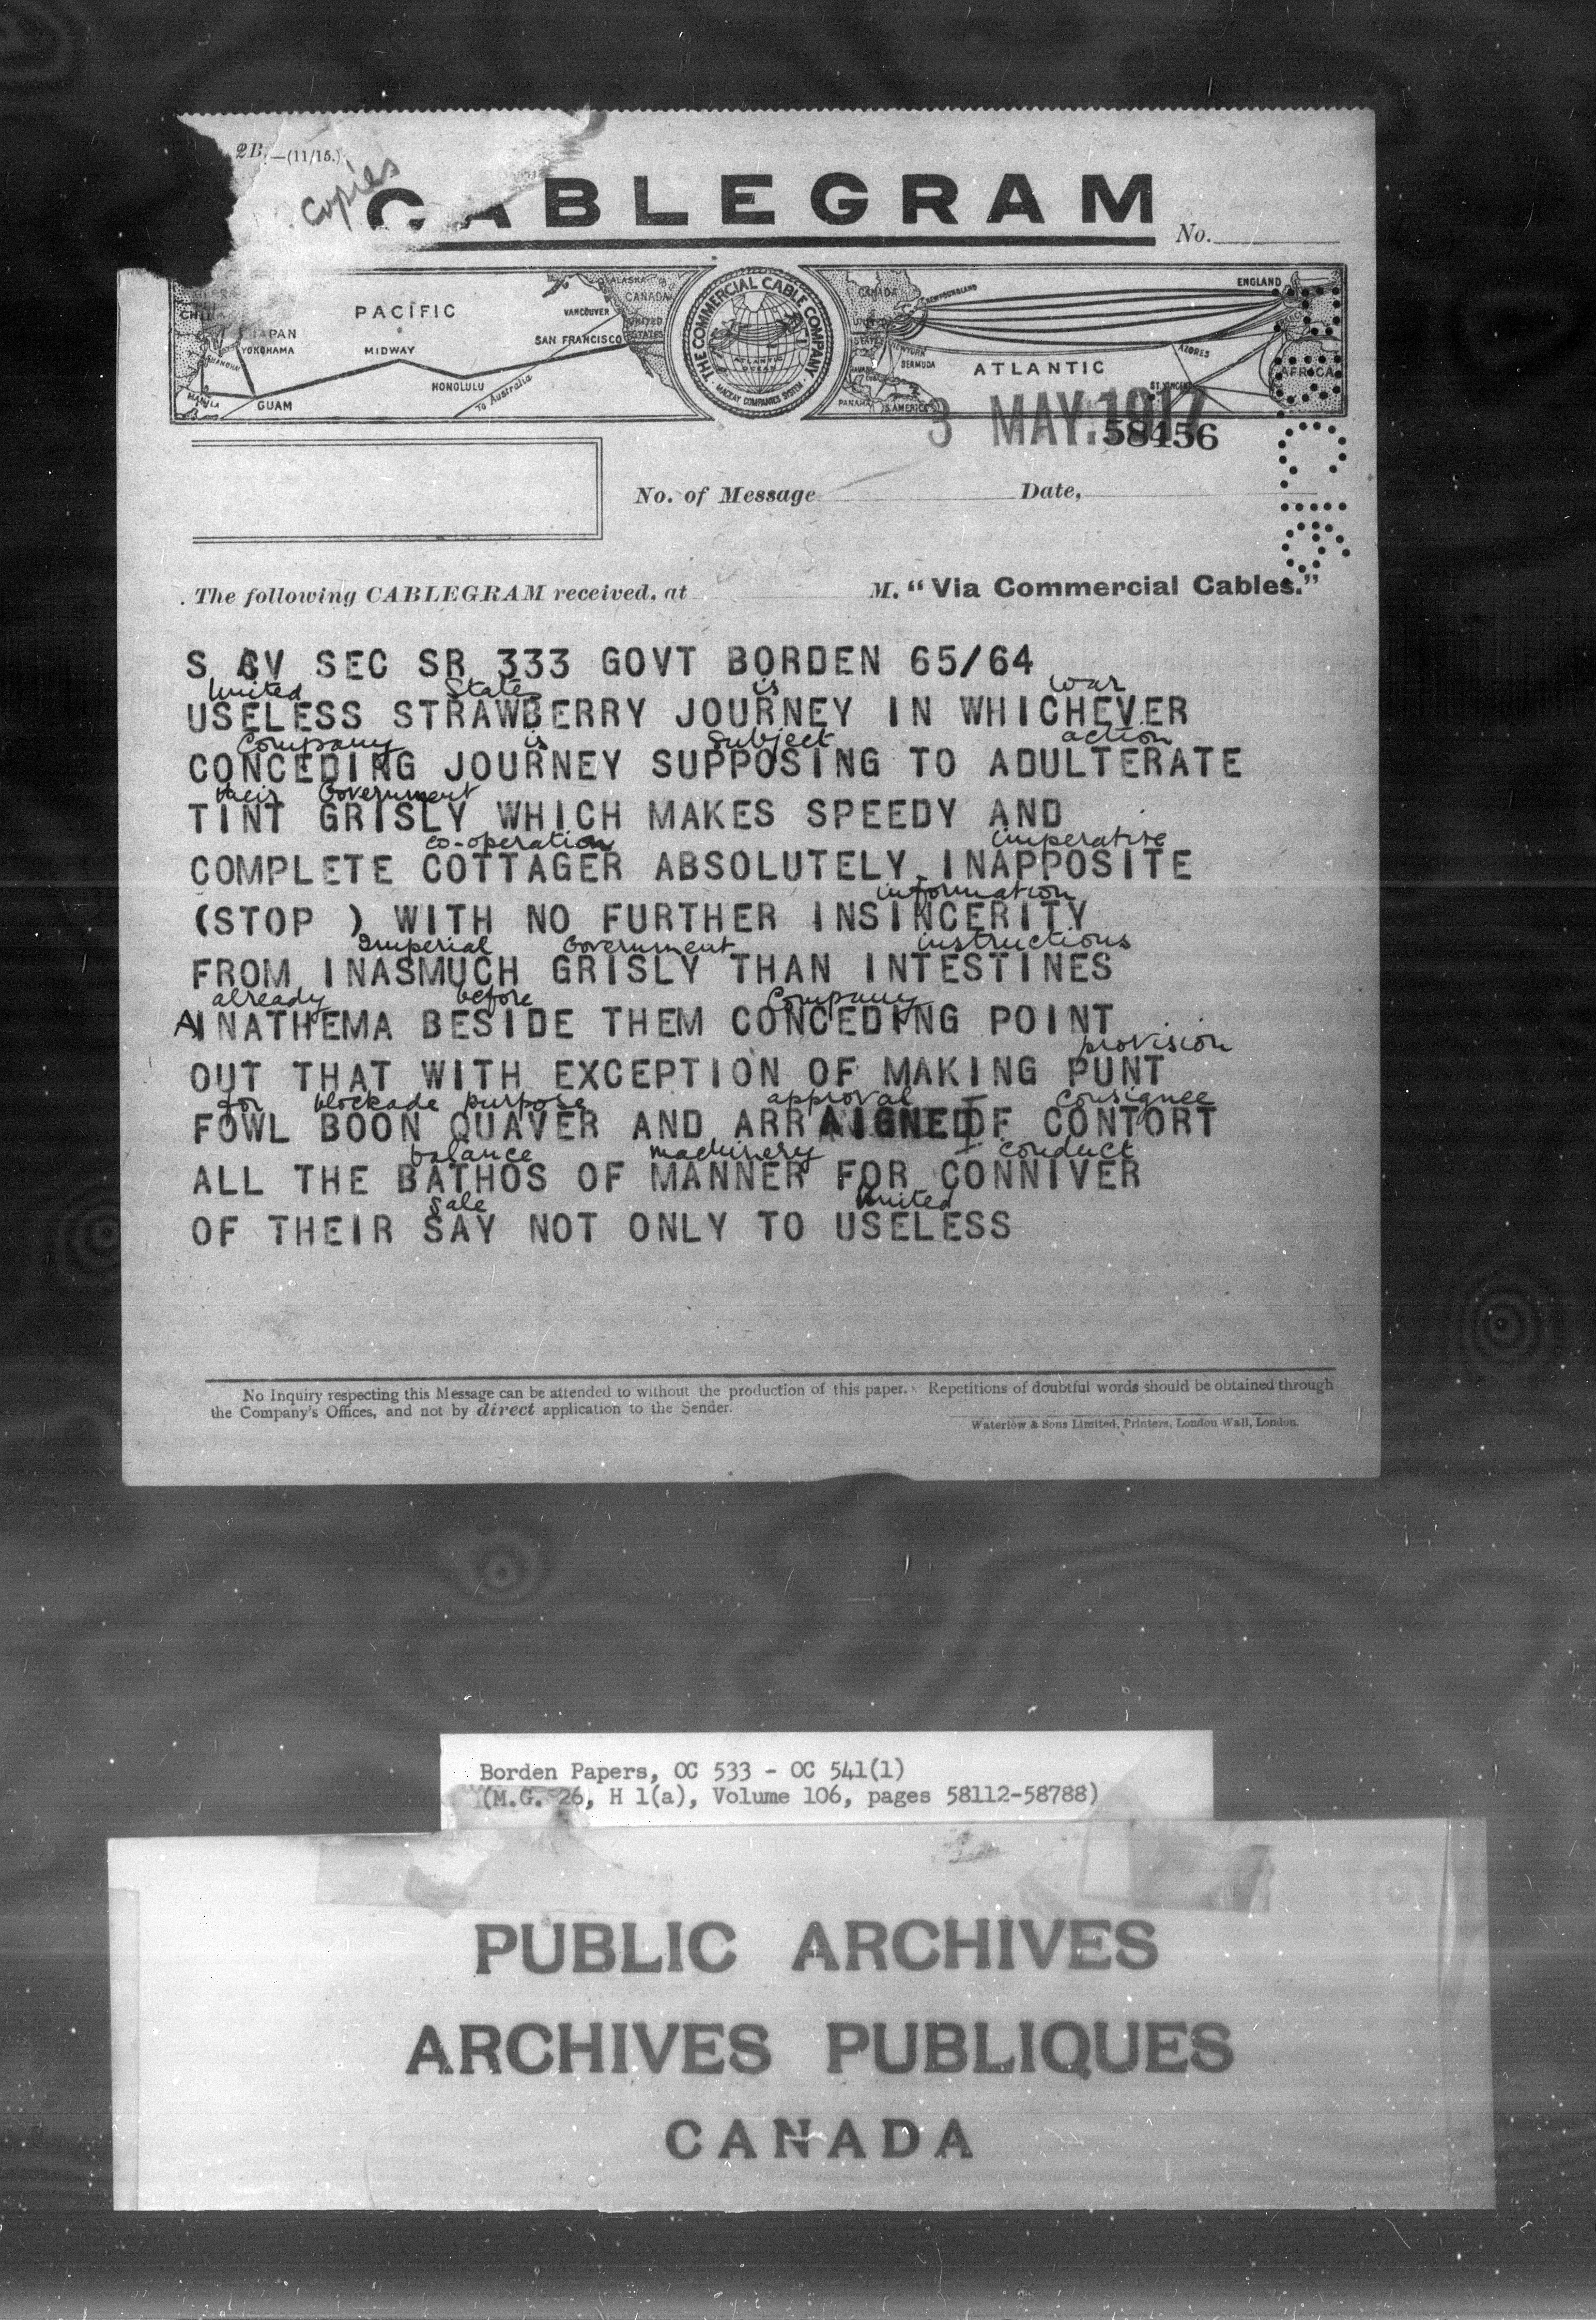 2B.—(11/15.)
Copies
CABLEGRAM
No.
PACIFIC
JAPAN
YOKOHAMA
SHANGHAI
MANILA
GUAM
MIDWAY
HONOLULU
To Australia
SAN FRANCISCO
VANCOUVER
ALASKA
CANADA
UNITED STATES
THE COMMERCIAL CABLE COMPANY
ATLANTIC OCEAN
MACKAY COMPANIES SYSTEM
CANADA
NEWFOUNDLAND
NEW YORK
BERMUDA
PANAMA
S. AMERICA
ATLANTIC
AZORES
ST. VINCENT
ENGLAND
AFRICA
3 MAY. 1917
58456
No. of Message
Date,
The following CABLEGRAM received, at M. "Via Commercial Cables."
S GV SEC SR 333 GOVT BORDEN 65/64
United States is war
USELESS STRAWBERRY JOURNEY IN WHICHEVER
Company is subject action
CONCEDING JOURNEY SUPPOSING TO ADULTERATE
their Government
TINT GRISLY WHICH MAKES SPEEDY AND
co-operation imperative
COMPLETE COTTAGER ABSOLUTELY INAPPOSITE
information
(STOP ) WITH NO FURTHER INSINCERITY
Imperial Government instructions
FROM INASMUCH GRISLY THAN INTESTINES
already before Company
ANATHEMA BESIDE THEM CONCEDING POINT
provision
OUT THAT WITH EXCEPTION OF MAKING PUNT
for blockade purpose approval consignee
FOWL BOON QUAVER AND ARRAIGNED OF CONTORT
balance machinery conduct
ALL THE BATHOS OF MANNER FOR CONNIVER
sale United
OF THEIR SAY NOT ONLY TO USELESS
No Inquiry respecting this Message can be attended to without the production of this paper. Repetitions of doubtful words should be obtained through
the Company's Offices, and not by direct application to the Sender.
Waterlow & Sons Limited, Printers, London Wall, London.
Borden Papers, OC 533 - OC 541(1)
(M.G. 26, H 1(a), Volume 106, pages 58112-58788)
PUBLIC ARCHIVES
ARCHIVES PUBLIQUES
CANADA